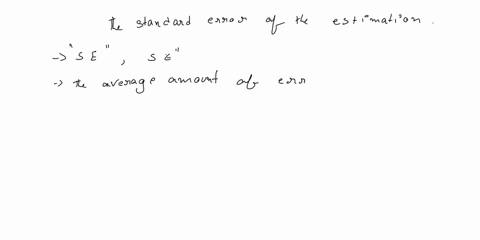 the standard error of the estimation.
-> "SE", SE"
-> the average amount of err